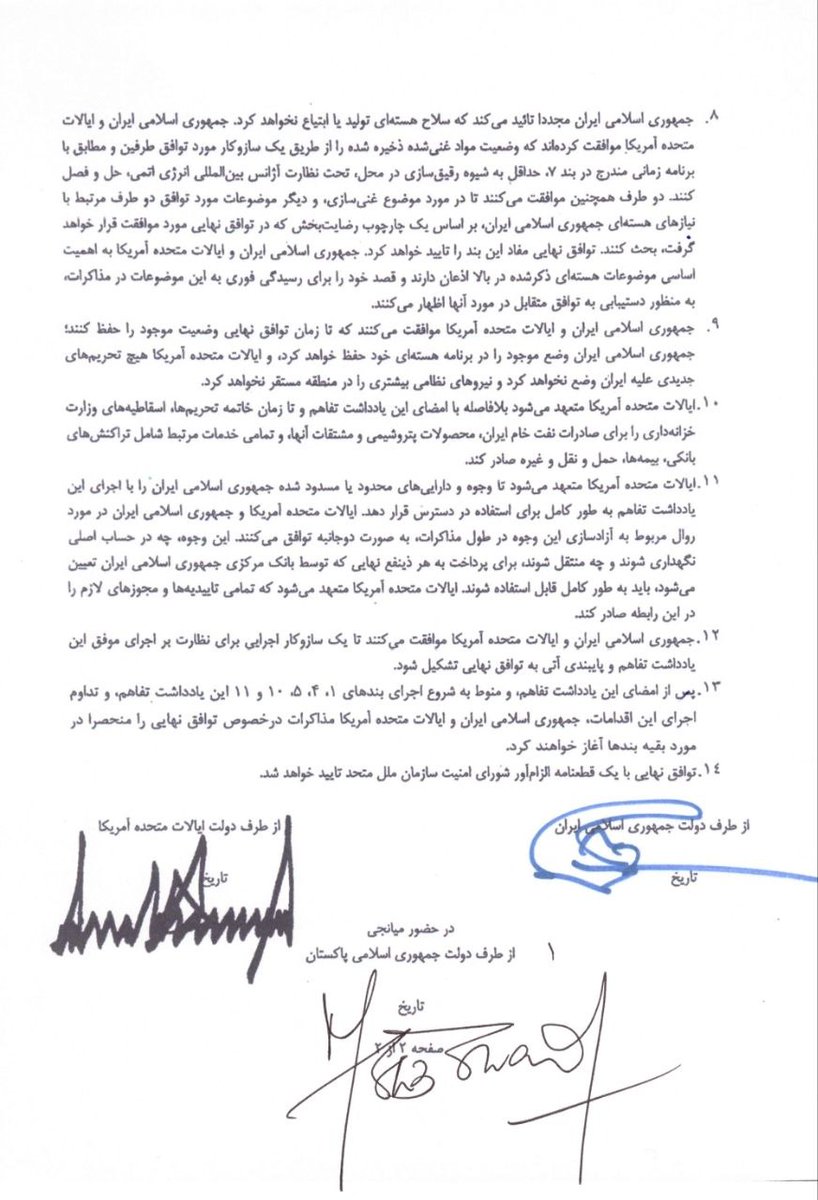 ۸. جمهوری اسلامی ایران مجددا تائید می‌کند که سلاح هسته‌ای تولید یا ابتیاع نخواهد کرد. جمهوری اسلامی ایران و ایالات
متحده آمریکا موافقت کرده‌اند که وضعیت مواد غنی‌شده ذخیره شده را از طریق یک سازوکار مورد توافق طرفین و مطابق با
برنامه زمانی مندرج در بند ۷، حداقل به شیوه رقیق‌سازی در محل، تحت نظارت آژانس بین‌المللی انرژی اتمی، حل و فصل
کنند. دو طرف همچنین موافقت می‌کنند تا در مورد موضوع غنی‌سازی، و دیگر موضوعات مورد توافق دو طرف مرتبط با
نیازهای هسته‌ای جمهوری اسلامی ایران، بر اساس یک چارچوب رضایت‌بخش که در توافق نهایی مورد موافقت قرار خواهد
گرفت، بحث کنند. توافق نهایی مفاد این بند را تایید خواهد کرد. جمهوری اسلامی ایران و ایالات متحده آمریکا به اهمیت
اساسی موضوعات هسته‌ای ذکرشده در بالا اذعان دارند و قصد خود را برای رسیدگی فوری به این موضوعات در مذاکرات،
به منظور دستیابی به توافق متقابل در مورد آنها اظهار می‌کنند.
۹. جمهوری اسلامی ایران و ایالات متحده آمریکا موافقت می‌کنند که تا زمان توافق نهایی وضعیت موجود را حفظ کنند؛
جمهوری اسلامی ایران وضع موجود را در برنامه هسته‌ای خود حفظ خواهد کرد، و ایالات متحده آمریکا هیچ تحریم‌های
جدیدی علیه ایران وضع نخواهد کرد و نیروهای نظامی بیشتری را در منطقه مستقر نخواهد کرد.
۱۰. ایالات متحده آمریکا متعهد می‌شود بلافاصله با امضای این یادداشت تفاهم و تا زمان خاتمه تحریم‌ها، اسقاطیه‌های وزارت
خزانه‌داری را برای صادرات نفت خام ایران، محصولات پتروشیمی و مشتقات آنها، و تمامی خدمات مرتبط شامل تراکنش‌های
بانکی، بیمه‌ها، حمل و نقل و غیره صادر کند.
۱۱. ایالات متحده آمریکا متعهد می‌شود تا وجوه و دارایی‌های محدود یا مسدود شده جمهوری اسلامی ایران را با اجرای این
یادداشت تفاهم به طور کامل برای استفاده در دسترس قرار دهد. ایالات متحده آمریکا و جمهوری اسلامی ایران در مورد
روال مربوط به آزادسازی این وجوه در طول مذاکرات، به صورت دوجانبه توافق می‌کنند. این وجوه، چه در حساب اصلی
نگهداری شوند و چه منتقل شوند، برای پرداخت به هر ذینفع نهایی که توسط بانک مرکزی جمهوری اسلامی ایران تعیین
می‌شود، باید به طور کامل قابل استفاده شوند. ایالات متحده آمریکا متعهد می‌شود که تمامی تاییدیه‌ها و مجوزهای لازم را
در این رابطه صادر کند.
۱۲. جمهوری اسلامی ایران و ایالات متحده آمریکا موافقت می‌کنند تا یک سازوکار اجرایی برای نظارت بر اجرای موفق این
یادداشت تفاهم و پایبندی آتی به توافق نهایی تشکیل شود.
۱۳. پس از امضای این یادداشت تفاهم، و منوط به شروع اجرای بندهای ۱، ۴، ۵، ۱۰ و ۱۱ این یادداشت تفاهم، و تداوم
اجرای این اقدامات، جمهوری اسلامی ایران و ایالات متحده آمریکا مذاکرات درخصوص توافق نهایی را منحصرا در
مورد بقیه بندها آغاز خواهند کرد.
۱۴. توافق نهایی با یک قطعنامه الزام‌آور شورای امنیت سازمان ملل متحد تایید خواهد شد.
از طرف دولت جمهوری اسلامی ایران
از طرف دولت ایالات متحده آمریکا
تاریخ
تاریخ
در حضور میانجی
از طرف دولت جمهوری اسلامی پاکستان
تاریخ
صفحه ۲ از ۲